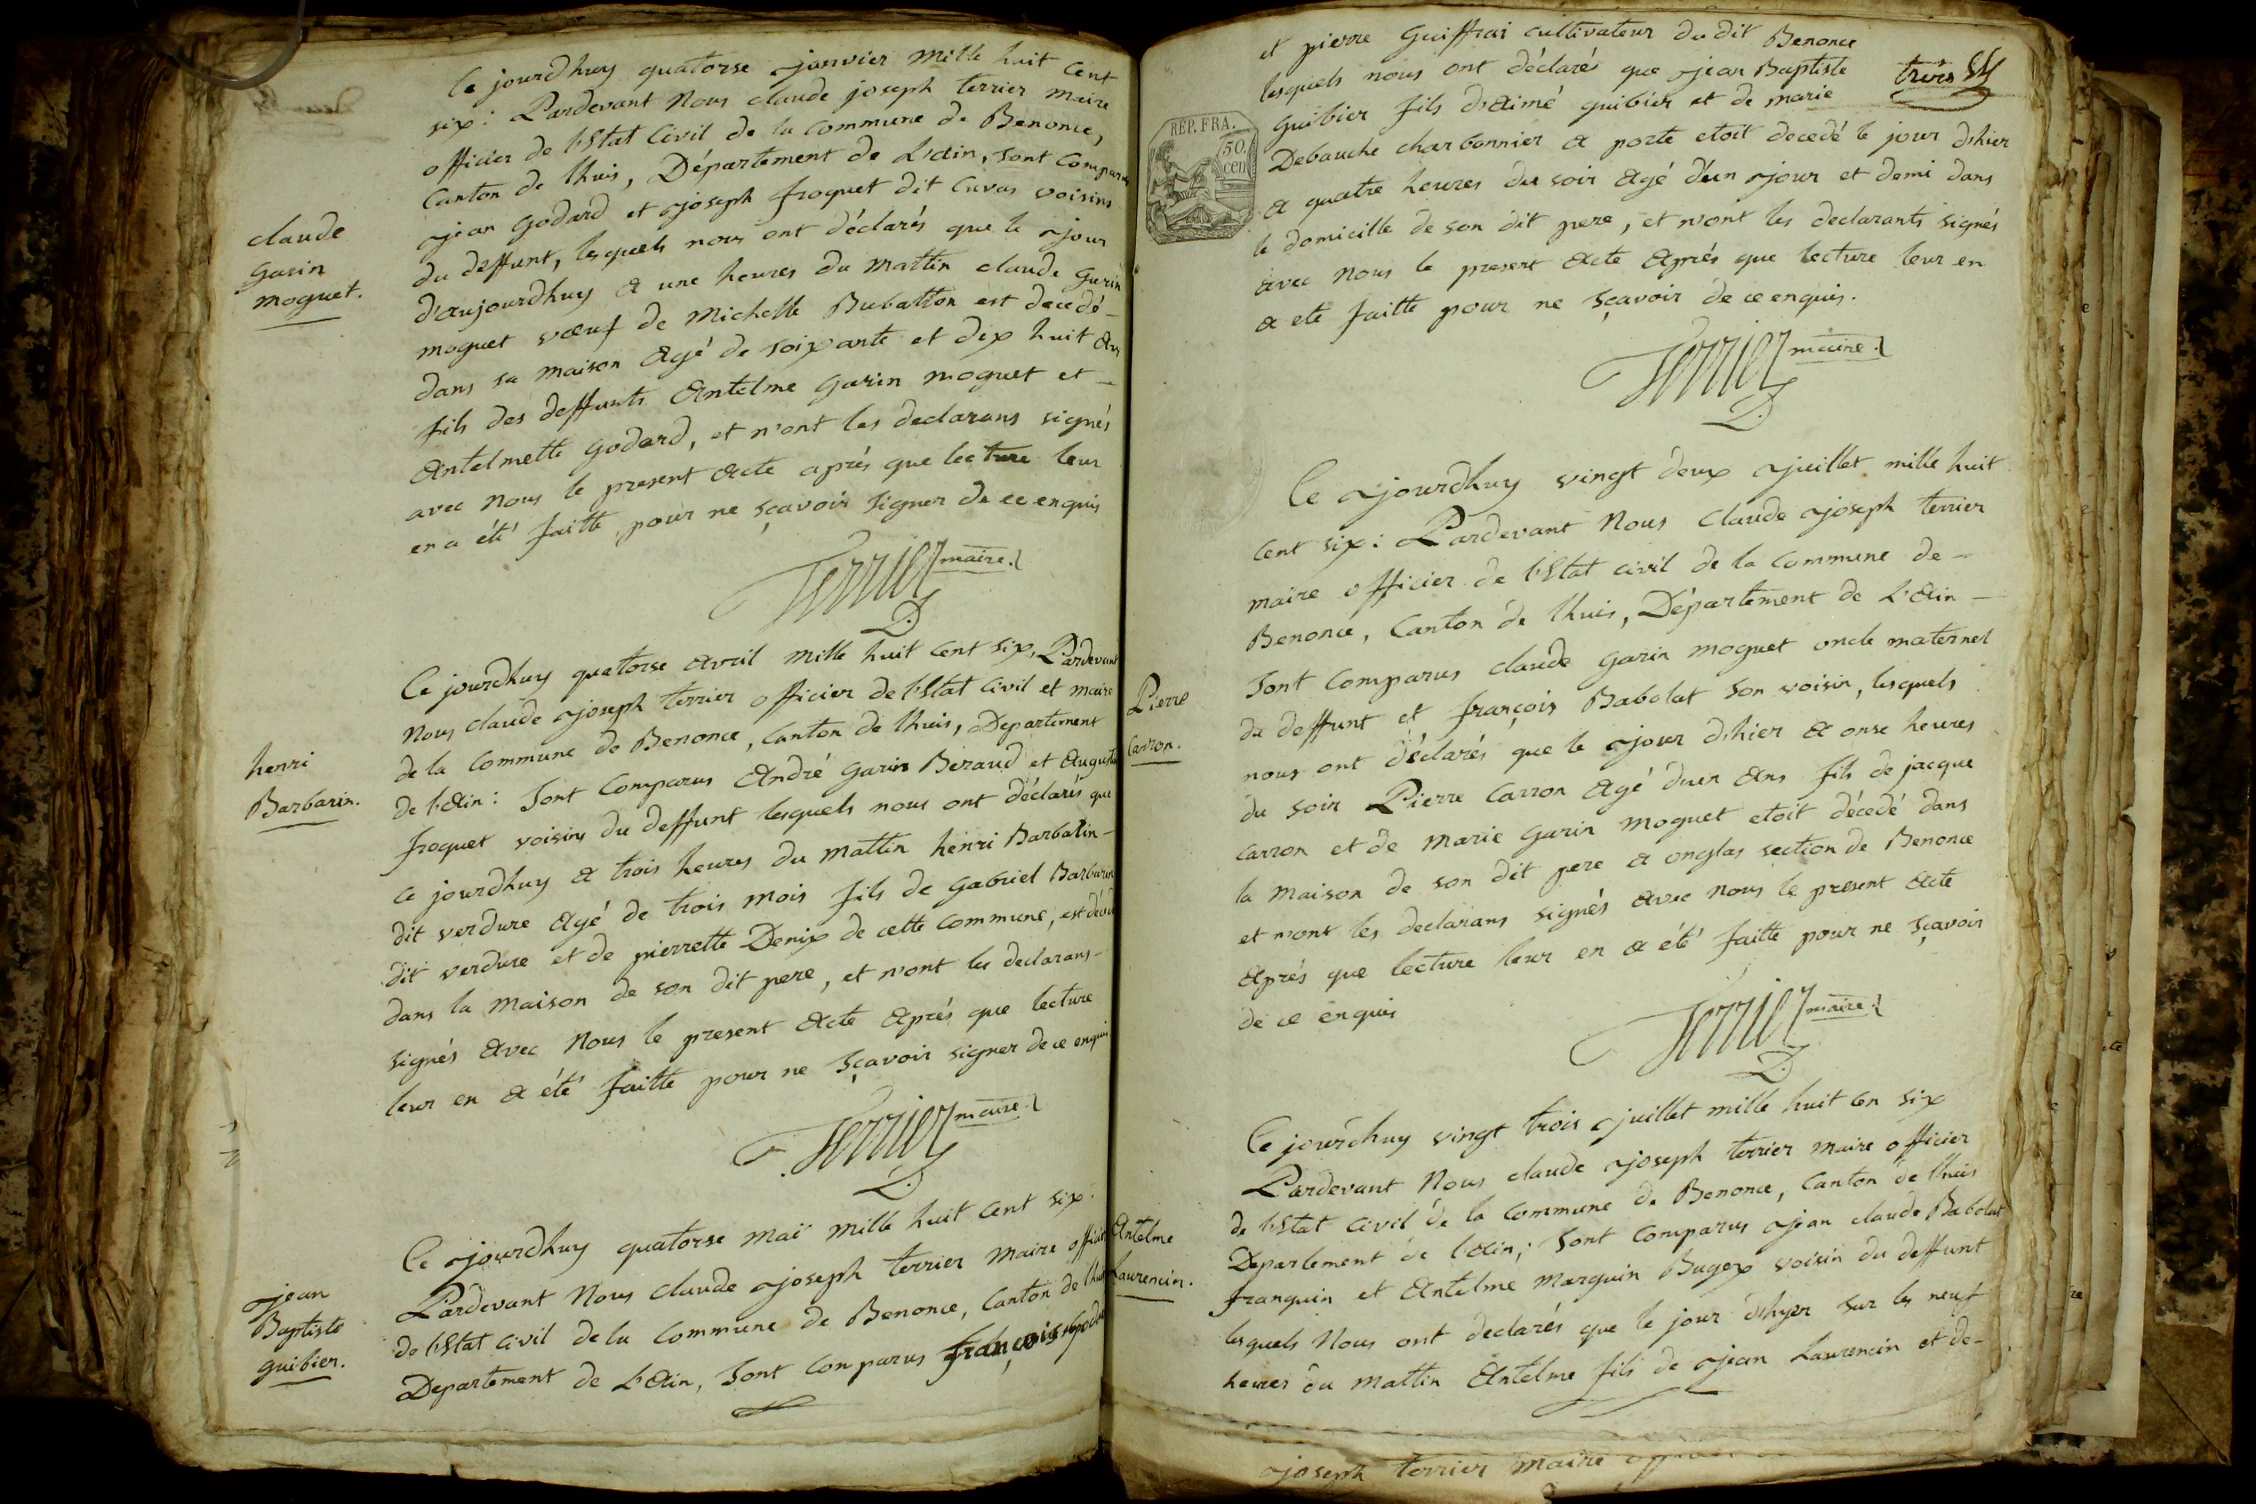 Ce jourdhuy quatorse janvier mille huit cent
six: Pardevant Nous claude joseph terrier maire
officier de l'Etat Civil de la Commune de Benonce,
Canton de lhuis, Département de L'ain, sont Comparus
jean godard et joseph froquet dit Cuvas voisins
du deffunt, lesquels nous ont déclarés que le jour
d'aujourdhuy a une heures du mattin claude garin
moguet vœuf de michelle Bubatton est decedé
dans sa maison agé de soixante et dix huit ans
fils des deffunts antelme garin moguet et
antelmette godard, et n'ont les declarans signés
avec nous le present acte aprés que lecture leur
en a été faitte, pour ne sçavoir signer de ce enquis
claude
garin
moguet.
Terrier maire.
Ce jourdhuy quatorse avril mille huit cent six, Pardevant
Nous claude joseph terrier officier de l'Etat Civil et maire
de la Commune de Benonce, Canton de lhuis, Departement
de l'ain: Sont Comparus André garin Beraud et Augustin
froquet voisins du deffunt lesquels nous ont déclarés que
ce jourdhuy a trois heures du mattin henri Barbarin
dit verdure agé de trois mois fils de gabriel Barbarin
dit verdure et de pierrette Denix de cette Commune, est
dans la maison de son dit pere, et n'ont les declarans
signés avec Nous le present acte aprés que lecture
leur en a été faitte pour ne sçavoir signer de ce enquis
henri
Barbarin.
Terrier maire.
Ce jourdhuy quatorse maï mille huit cent six:
Pardevant Nous claude joseph terrier maire officier
de l'Etat civil de la Commune de Benonce, Canton de lhuis
Departement de L'ain, Sont Comparus françois
jean
Baptiste
guibier.
et pierre Guiffrai cultivateur du dit Benonce
lesquels nous ont déclaré que jean Baptiste
guibier fils d'aimé guibier et de marie
Debauche charbonnier a porte etoit decedé le jour d'hier
a quatre heures du soir agé d'un jour et demi dans
le domicille de son dit pere, et n'ont les declarants signés
avec nous le present acte aprés que lecture leur en
a eté faitte pour ne sçavoir de ce enquis.
trois
REP. FRA.
50.
cen
Terrier maire.
Ce jourdhuy vingt deux juillet mille huit
cent six: Pardevant Nous Claude joseph terrier
maire officier de l'Etat civil de la Commune de
Benonce, Canton de lhuis, Département de L'ain
Sont Comparus claude garin moguet oncle maternel
du deffunt et françois Babolat son voisin, lesquels
nous ont déclarés que le jour d'hier a onse heures
du soir Pierre Carron agé d'un ans fils de jacque
Carron et de marie garin moguet etoit décedé dans
la maison de son dit pere a onglas section de Benonce
et n'ont les declarans signés avec nous le present acte
aprés que lecture leur en a été faitte pour ne sçavoir
de ce enquis
Pierre
Carron.
Terrier maire.
Ce jourdhuy vingt trois juillet mille huit cen six
Pardevant Nous claude joseph terrier maire officier
de l'Etat civil de la Commune de Benonce, Canton de lhuis
Departement de l'ain; Sont Comparus jean claude Babolat
franquin et Antelme marquin Bugex voisin du deffunt
lesquels Nous ont declarés que le jour d'hyer sur les neuf
heures du mattin Antelme fils de jean Laurencin et de
Antelme
Laurencin.
joseph terrier maire